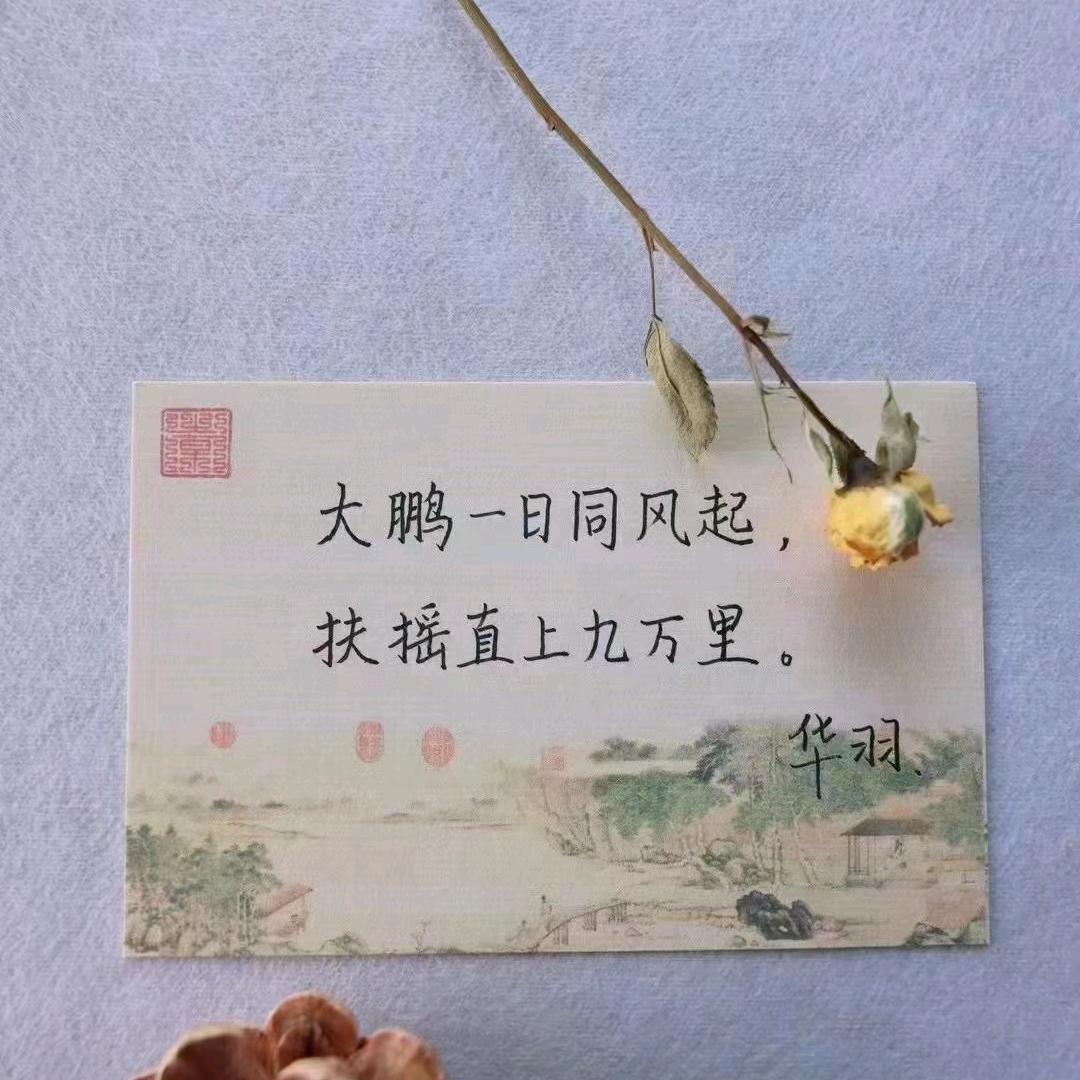 大鹏一日同风起，
扶摇直上九万里。
华羽.